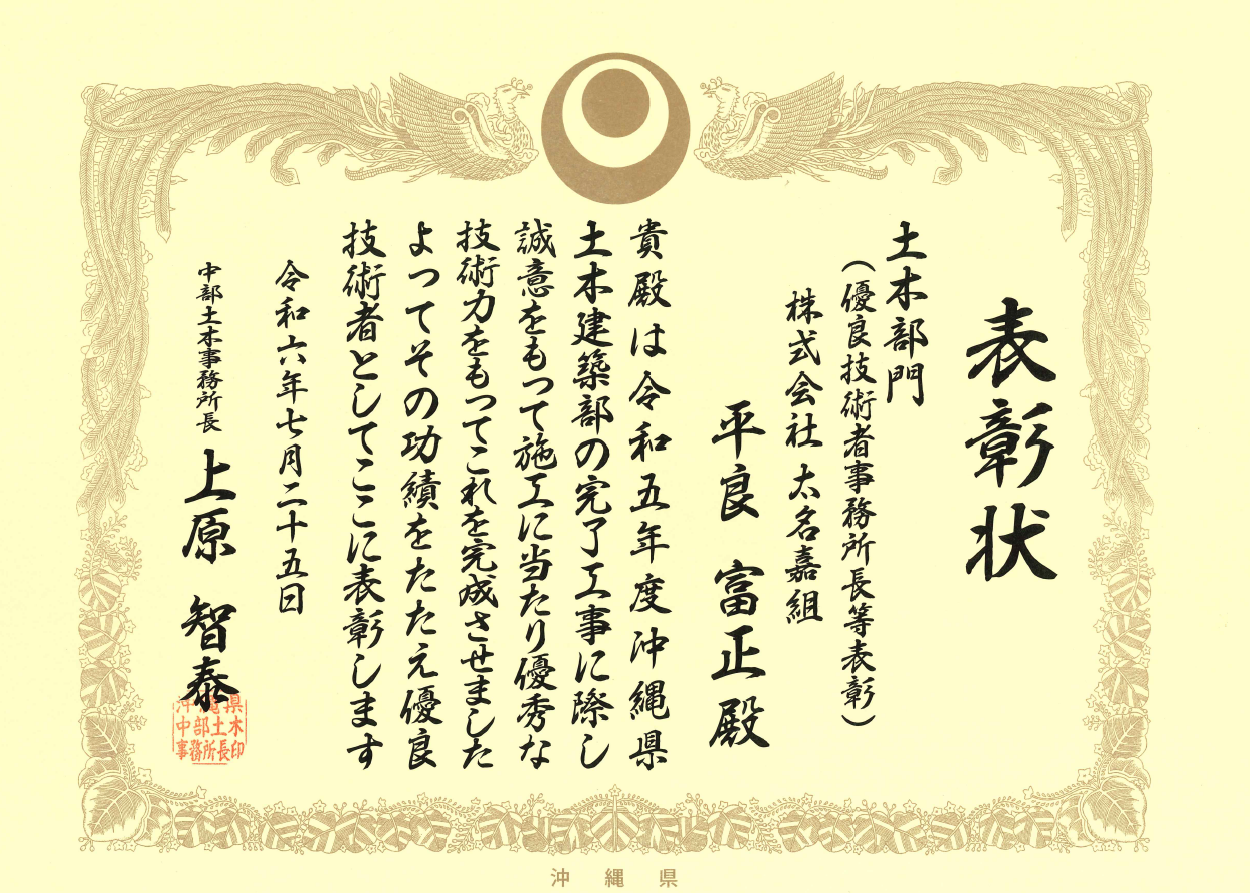 表彰状
土木部門
(優良技術者事務所長等表彰)
株式会社 太名嘉組
平良 富正 殿
貴殿は令和五年度沖縄県
土木建築部の完了工事に際し
誠意をもって施工に当たり優秀な
技術力をもってこれを完成させました
よってその功績をたたえ優良
技術者としてここに表彰します
令和六年七月二十五日
中部土木事務所長 上原 智泰
沖縄県
中部土木
事務所長印
沖縄県